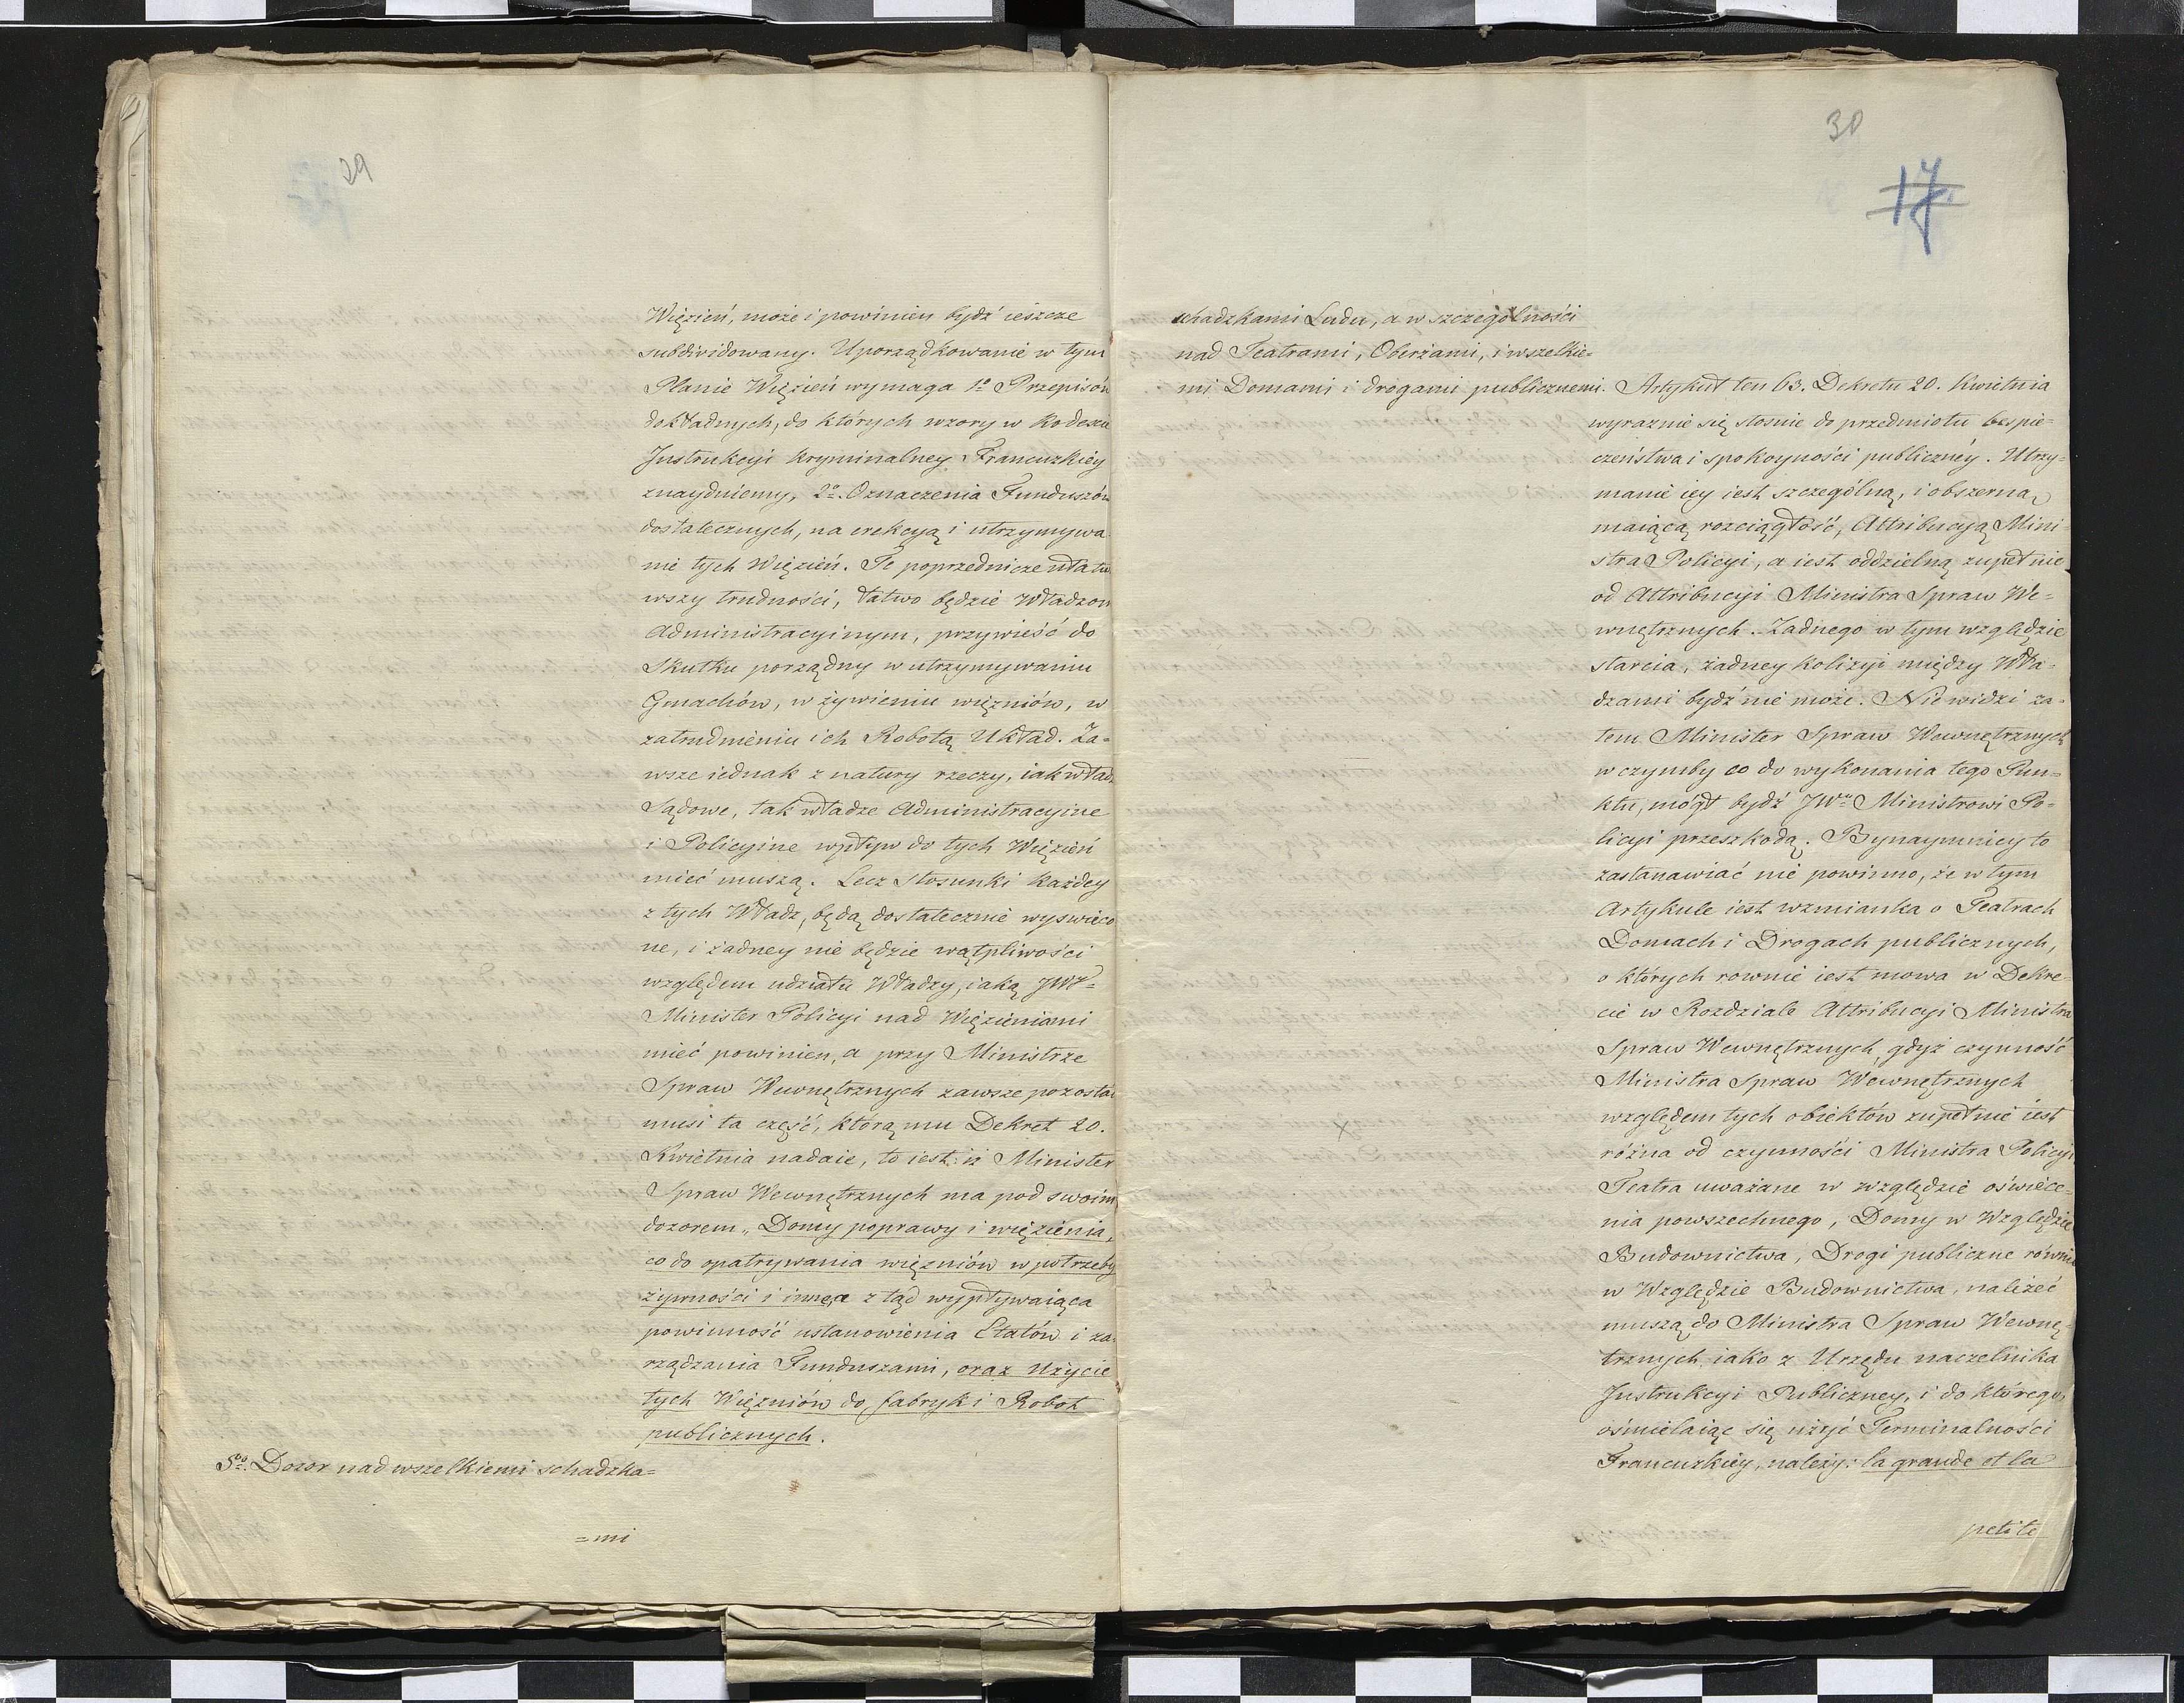 29
Więzień, może i powinien bydź ieszcze
subdividowany. Uporządkowanie w tym
Planie Więzień wymaga 1o Przepisów
dokładnych, do których wzory w Kodexie
Instrukcyi kryminalney Francuzkiey
znaydniemy, 2o. Oznaczenia Funduszów
dostatecznych, na erekcyą i utrzymywa
nie tych Więzień. Te poprzednicze ułatw
wszy trudności, łatwo będzie Władzom
Administracyinym, przywieść do
Skutku porządny w utrzymywaniu
Gmachów, w żywieniu więzniów, w
zatrudnieniu ich Robotą Układ. Za=
wsze iednak z natury rzeczy, iak wład
Sądowe, tak władze Administracyine
i Policyine wpływ do tych Więzień
mieć muszą. Lecz stosunki każdey
z tych Władz, będą dostatecznie wyswieco
ne, i żadney nie będzie wątpliwości
względem udziału Władzy, iaką JW=
Minister Policyi nad Więzieniami
mieć powinien, a przy Ministrze
Spraw Wewnętrznych zawsze pozostać
musi ta część, którą mu Dekret 20.
Kwietnia nadaie, to iest: iż Minister
Spraw Wewnętrznych ma pod swoim
dozorem „Domy poprawy i więzienia,
co do opatrywania więzniów w potrzeby
żywności i inne, a z tąd wypływaiąca
powinność ustanowienia Etatów i za=
rządzania Funduszami, oraz Użycie
tych Więzniów do fabryk i Robot
publicznych.
5o. Dozor nad wszelkiemi schadzka=
=mi
30
17.
schadzkami Ludu, a w szczególności
nad Teatrami, Oberżami, i wszelkie=
mi Domami i drogami publicznemi. Artykuł ten 63. Dekretu 20. Kwietnia
wyraznie się stosuie do przedmiotu bespie=
czeństwa i spokoyności publiczney. Utrzy=
manie iey iest szczególną, i obszerną
maiącą rozciągłość, Attribucyą Mini=
stra Policyi, a iest oddzielną zupełnie
od Attribucyi Ministra Spraw We=
wnętrznych. Żadnego w tym względzie
starcia, żadney kolizyi między Wła=
dzami bydź nie może. Nie widzi za=
tem Minister Spraw Wewnętrznych
w czymby co do wykonania tego Pun=
ktu, mógł bydź JWu Ministrowi Po=
licyi przeszkodą. Bynaymniey to
zastanawiać nie powinno, że w tym
Artykule iest wzmianka o Teatrach
Domach i Drogach publicznych,
o których rownie iest mowa w Dekre=
cie w Rozdziale Attribucyi Ministra
Spraw Wewnętrznych, gdyż czynność
Ministra Spraw Wewnętrznych
względem tych obiektów zupełnie iest
różna od czynności Ministra Policyi
Teatra uważane w względzie oświece=
nia powszechnego, Domy w Względzie
Budownictwa, Drogi publiczne równie
w Względzie Budownictwa, należeć
muszą do Ministra Spraw Wewnę=
trznych iako z Urzędu naczelnika
Instrukcyi Publiczney, i do którego,
ośmielaiąc się użyć Terminalności
Francuzkiey, należy: la grande et la
petite